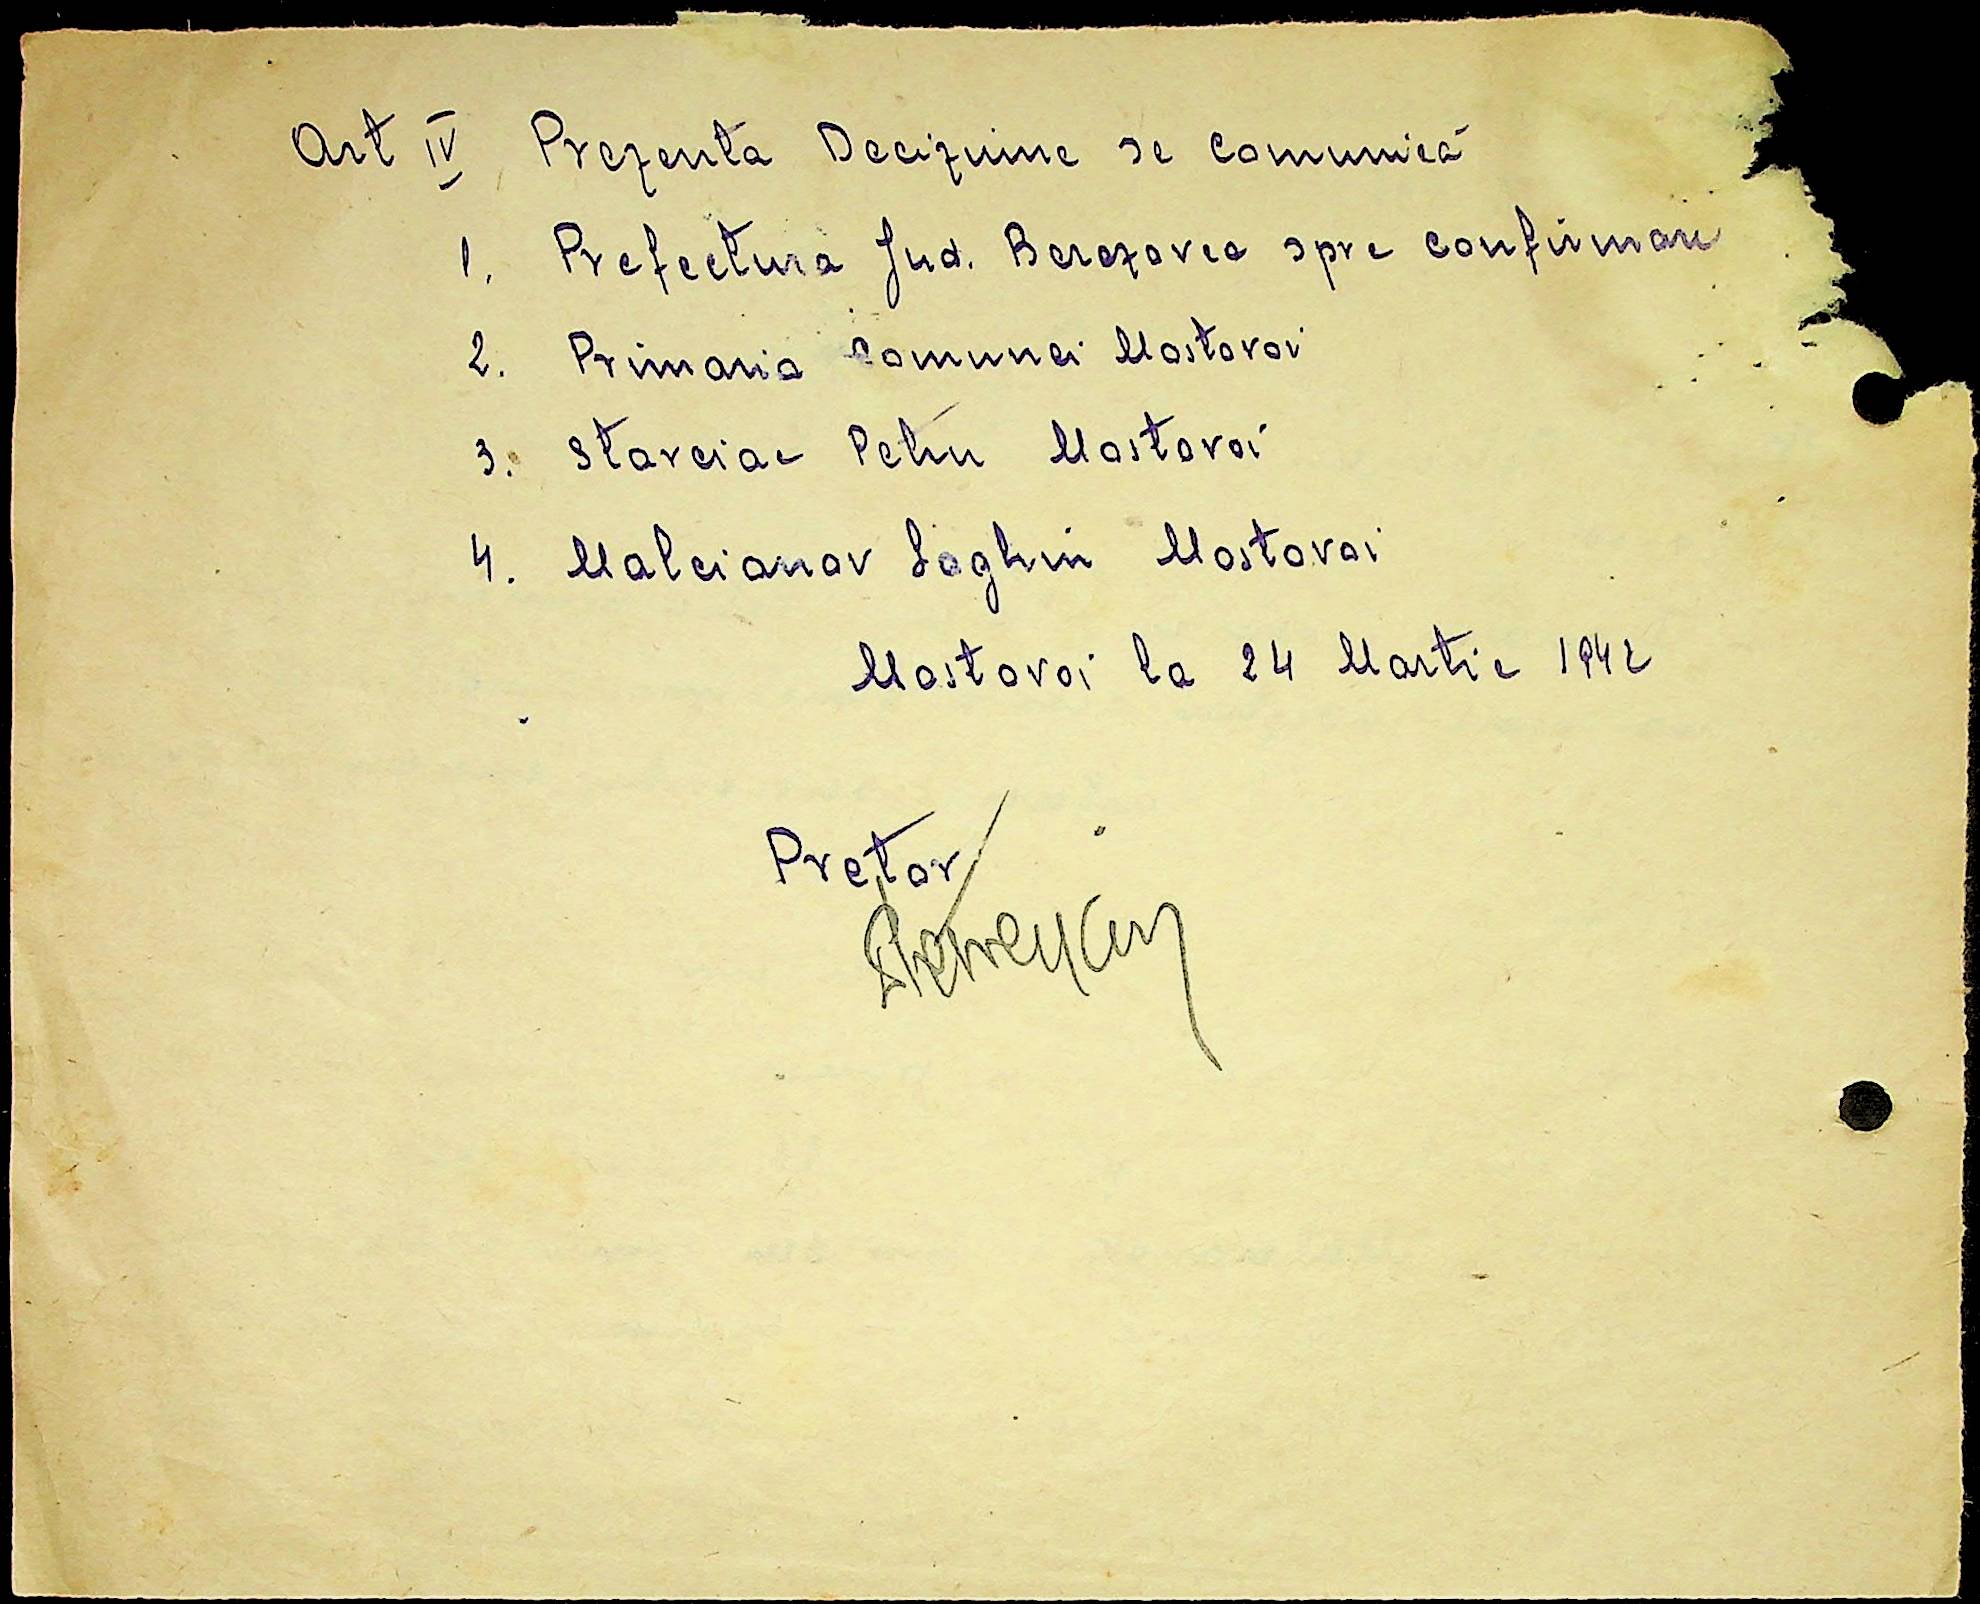 Art IV Prezenta Deciziune se comunică
1. Prefectura Jud. Berezovca spre confirmare
2. Primaria Comunei Mostovoi
3. Starciac Petru Mostovoi
4. Malcianov Loghin Mostovoi
Mostovoi la 24 Martie 1942
Pretor